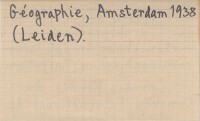 Géographie, Amsterdam 1938
(Leiden).